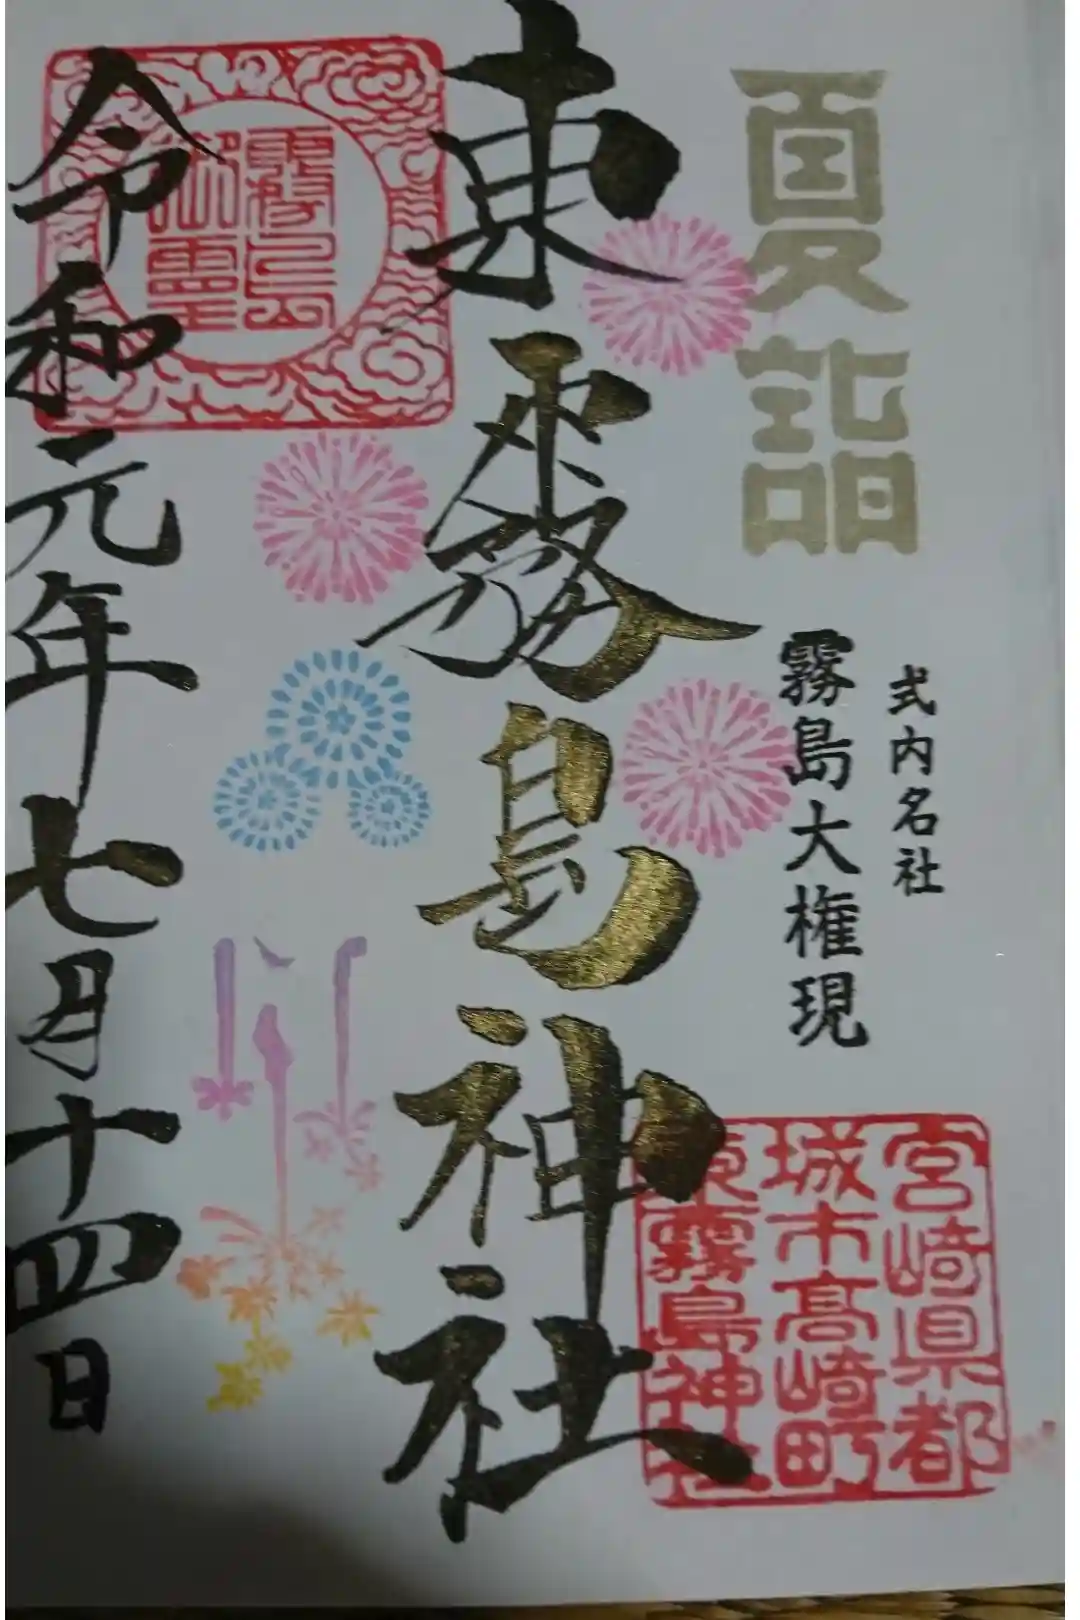 夏詣
式内名社
霧島大権現
宮崎県都
城市高崎町
東霧島神社
東霧島神社
令和元年七月十四日